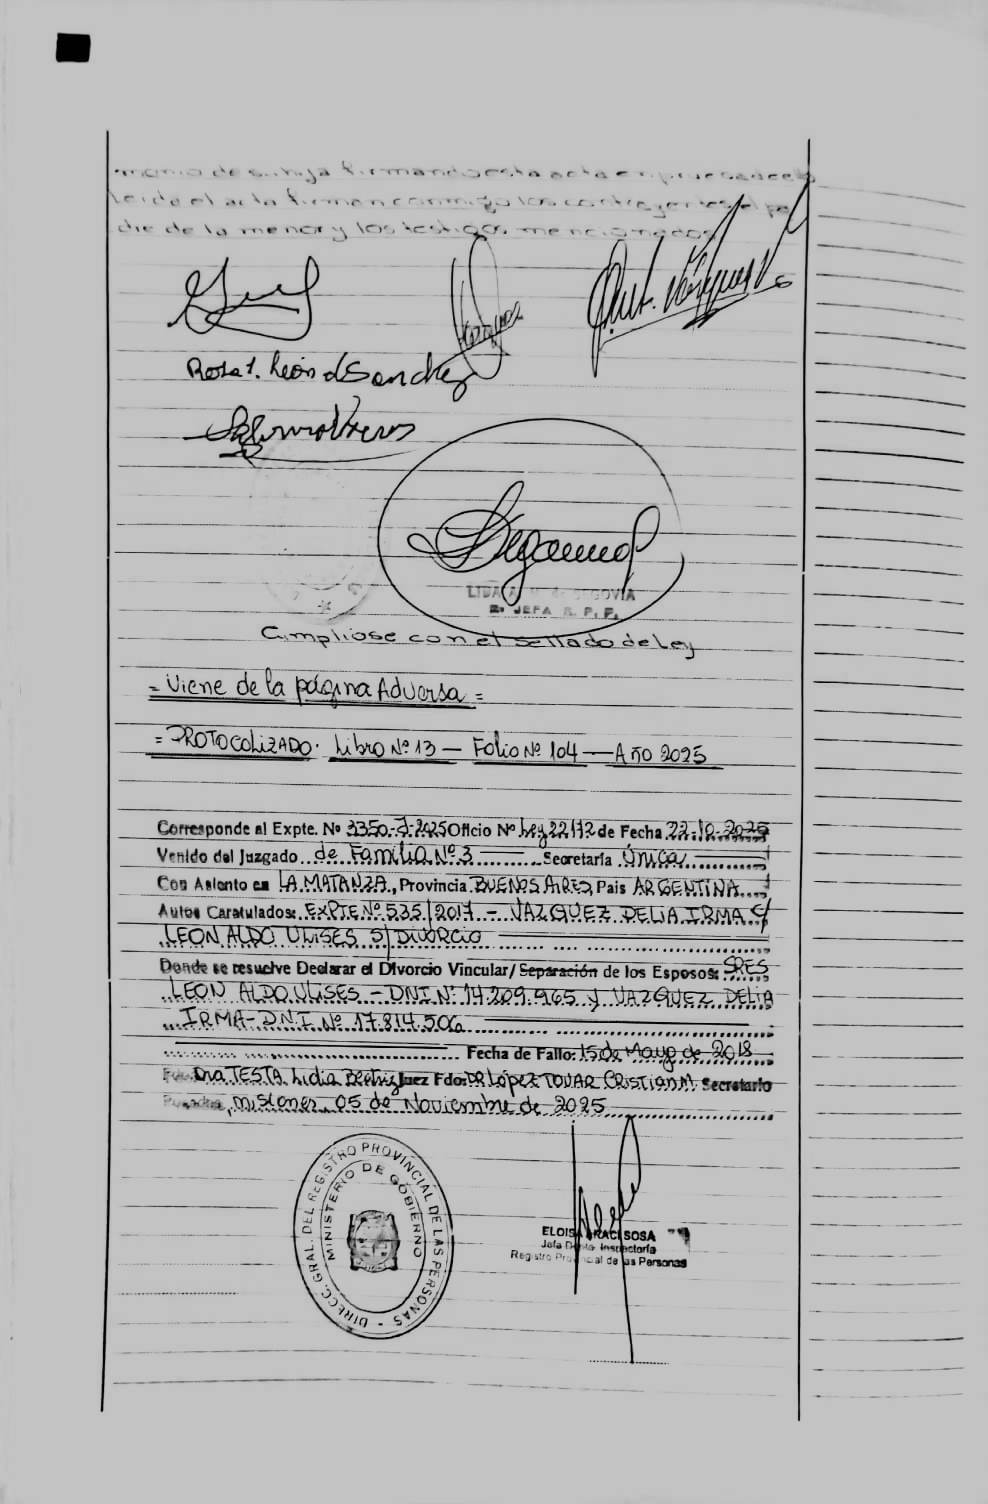 monio de su hija firmando esta acta en prueba de ello
Leida el acta firman conmigo los contrayentes el pa
dre de la menor y los testigos mencionados
Rosa 1. León d Sanchez
LIDA A. de SEGOVIA
JEFA R. P. P.
Cumpliose con el sellado de Ley
= Viene de la página Adversa =
= PROTOCOLIZADO. Libro Nº 13 — Folio Nº 104 — Año 2025
Corresponde al Expte. Nº 3350-J-2025 Oficio Nº Ley 22172 de Fecha 22-10-2025
Venido del Juzgado de Familia Nº 3 Secretaría Única
Con Asiento en LA MATANZA, Provincia BUENOS AIRES País ARGENTINA
Autos Caratulados: EXPTE Nº 535/2017 - VAZQUEZ DELIA IRMA C/
LEON ALDO ULISES S/ DIVORCIO
Donde se resuelve Declarar el Divorcio Vincular/Separación de los Esposos: SRES
LEON ALDO ULISES - DNI Nº 14.209.965 y VAZQUEZ DELIA
IRMA - D.N.I. Nº 17.814.506
Fecha de Fallo: 15 de Mayo de 2018
Fdo: Dra TESTA Lidia Beatriz Juez Fdo: DR López TOVAR CRISTIAN M. Secretario
Posadas, Misiones, 05 de Noviembre de 2025
DIRECC. GRAL. DEL REGISTRO PROVINCIAL DE LAS PERSONAS -
MINISTERIO DE GOBIERNO
ELOISA ARACI SOSA
Jefa Inspectoría
Registro Provincial de las Personas